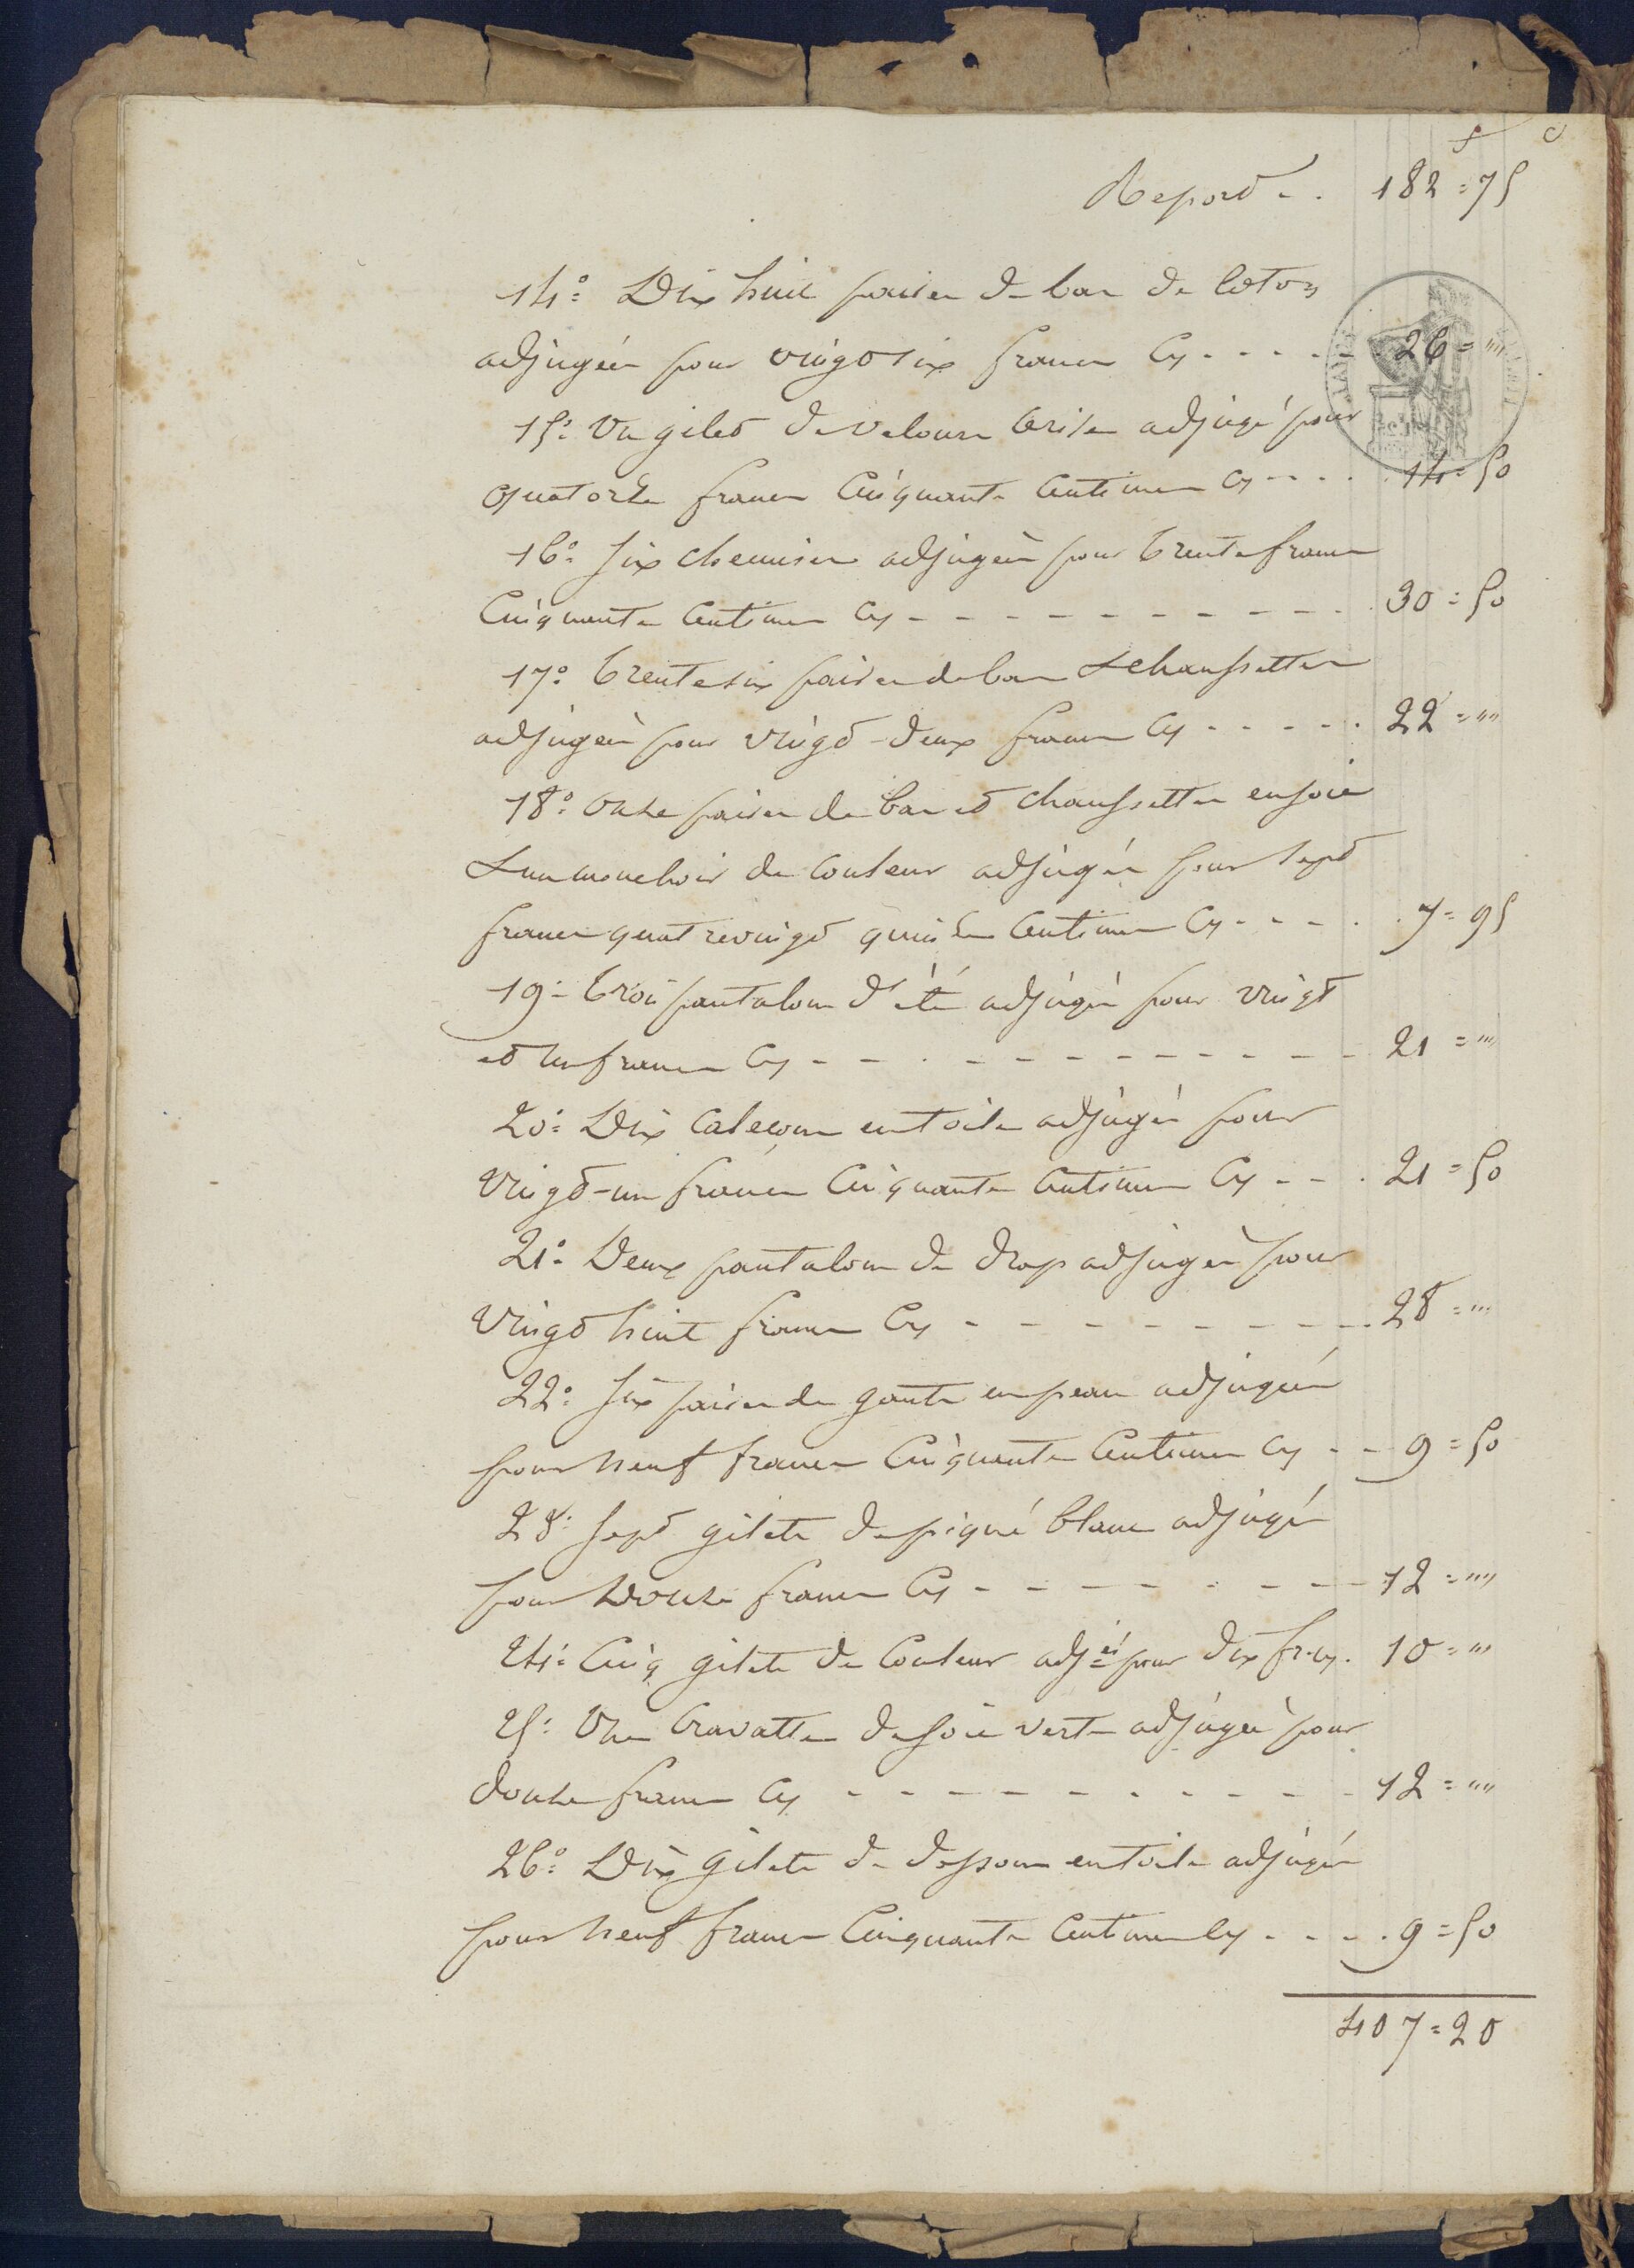 f c
Report - . 182 = 75
14° Dix huit paires de bas de Coton
adjugées pour vingt six francs Cy - - - - - 26 = ""
15° Un gilet de velours Cerise adjugé pour
quatorze francs Cinquante Centimes Cy - - - - 14 = 50
16° Six chemises adjugées pour trente francs
Cinquante Centimes Cy - - - - - - - - - - 30 = 50
17° trente six paires de bas & chaussettes
adjugées pour vingt-deux francs Cy - - - - - 22 = ""
18° Onze paires de bas et chaussettes en soie
& un mouchoir de Couleur adjugés pour sept
francs quatrevingt quinze Centimes Cy - - - - 7 = 95
19° trois pantalons d'été adjugés pour vingt
et un francs Cy - - - - - - - - - - - 21 = ""
20° Dix Caleçons en toile adjugés pour
Vingt-un francs Cinquante Centimes Cy - - - 21 = 50
21° Deux pantalons de drap adjugés pour
Vingt huit francs Cy - - - - - - - - - 28 = ""
22° Six paires de gants en peau adjugées
pour neuf francs Cinquante Centimes Cy - - 9 = 50
23° Sept gilets de piqué blanc adjugés
pour Douze francs Cy - - - - - - - - 12 = ""
24° Cinq gilets de Couleur adj.és pour dix fr. cy. 10 = ""
25° Une Cravatte de soie verte adjugée pour
douze francs Cy - - - - - - - - - - - 12 = ""
26° Dix Gilets de dessous en toile adjugés
pour neuf francs Cinquante Centimes Cy - - - - 9 = 50
407 = 20